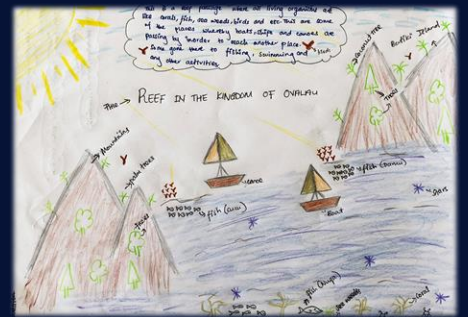 This is a key passage where all living organisms are
like small, fish, sea weeds, birds and etc. This are some
of the places whereby boats, ships and canoes are
passing by inorder to reach another place.
Some goes there to fishing, swimming and
any other activities.
REEF IN THE KINGDOM OF OVALAU
coconut tree
Island
Trees
Mountains
trees
canoe
fish
fish
Boat
trees
fish
coral